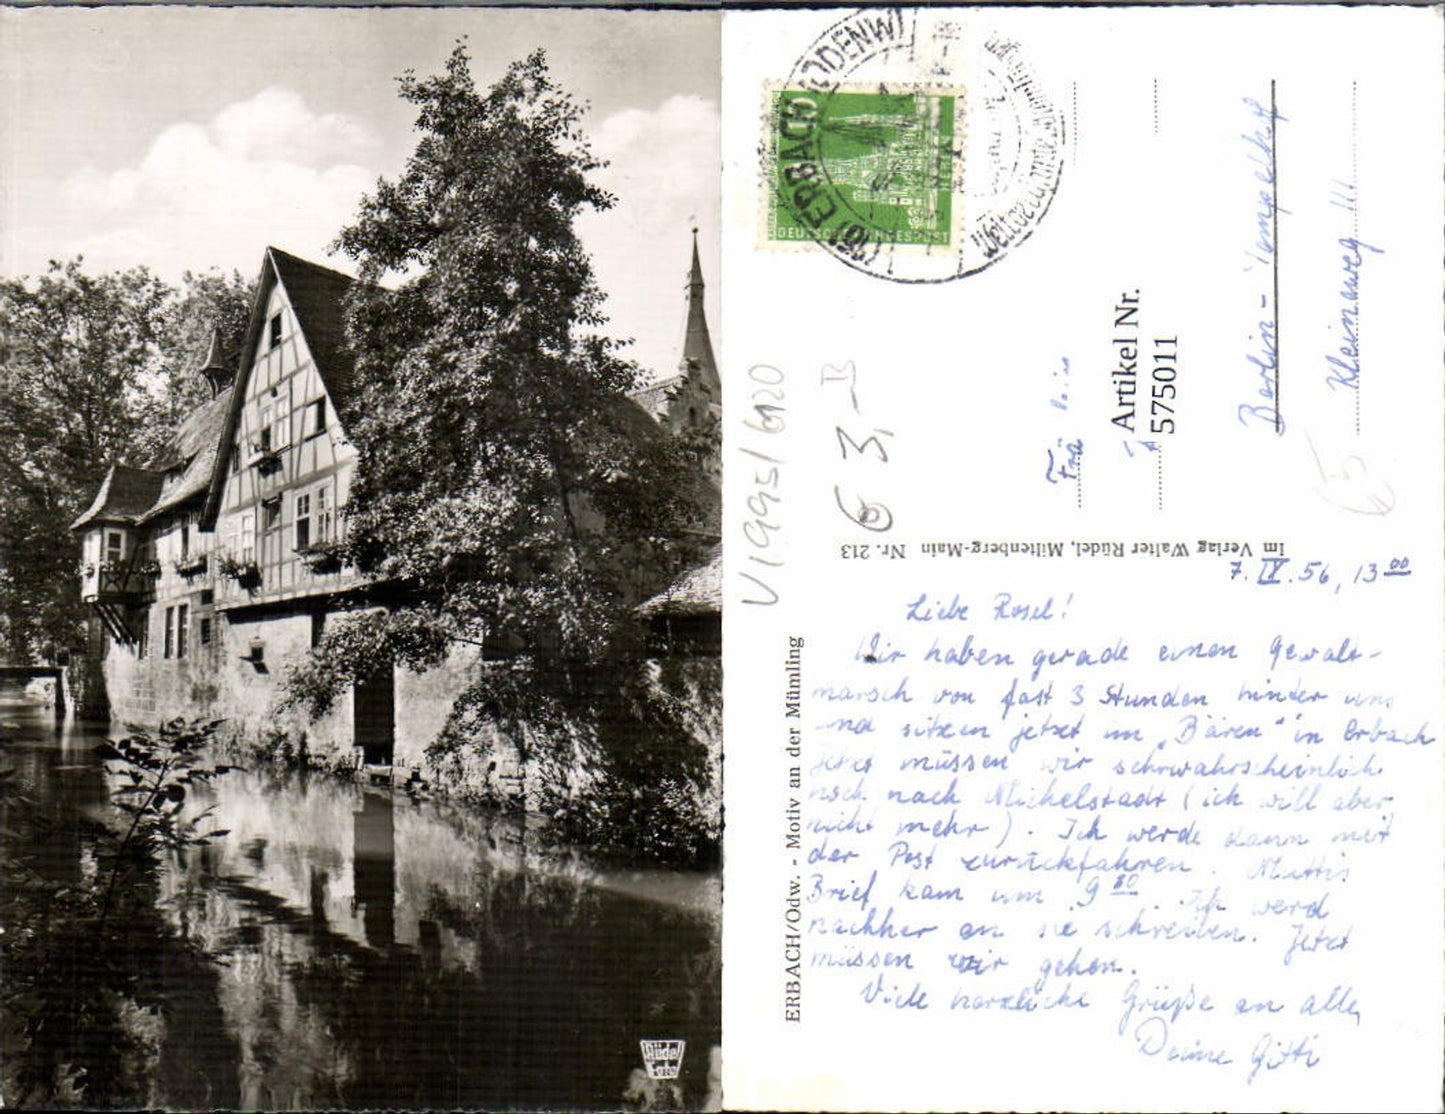 Rüdel
Verlag
ERBACH/Odw. - Motiv an der Mümling
Im Verlag Walter Rüdel, Miltenberg-Main Nr. 213
(16) ERBACH (ODENW)
DEUTSCHE BUNDESPOST
V1995/6120
6 3,-B
Artikel Nr.
575011
Berlin-Tempelhof
Kleinaweg
7. IX. 56, 13 00
Liebe Rosel!
Wir haben gerade einen Gewalt-
marsch von fast 3 Stunden hinter uns
und sitzen jetzt im "Bären" in Erbach
Jetzt müssen wir schrwahrscheinlich
noch nach Michelstadt (ich will aber
nicht mehr). Ich werde dann mit
der Post zurückfahren. Muttis
Brief kam um 9 30. Ich werd
nachher an sie schreiben. Jetzt
müssen wir gehen.
Viele herzliche Grüße an alle,
Deine Gitti